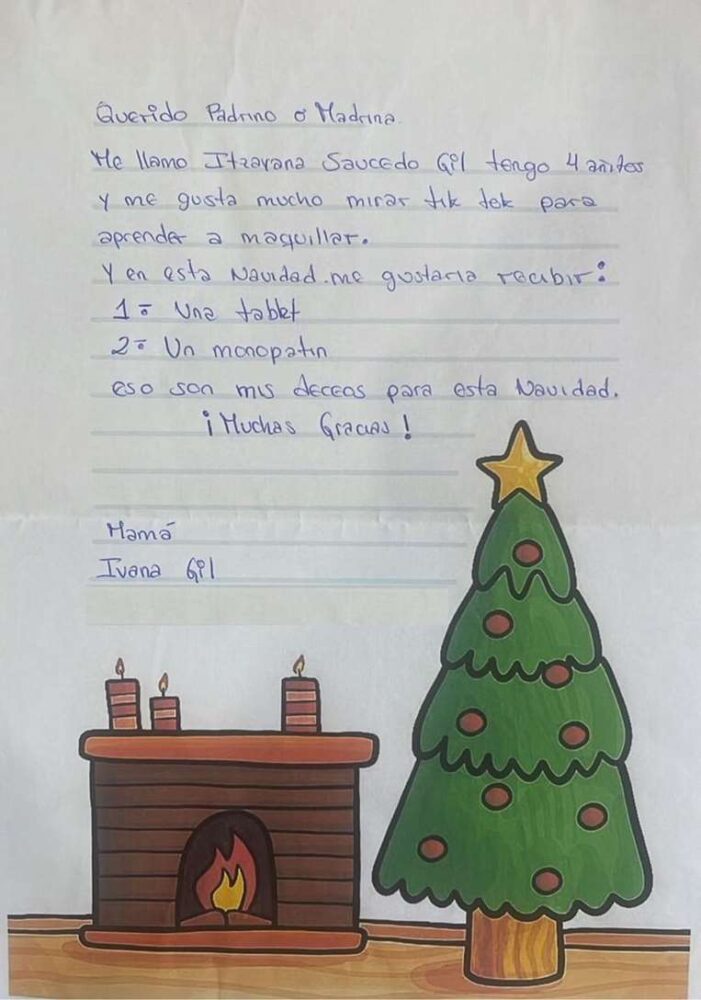 Querido Padrino o Madrina.
Me llamo Itzayana Saucedo Gil tengo 4 añitos
y me gusta mucho mirar tik tok para
aprender a maquillar.
Y en esta Navidad me gustaria recibir:
1= Una tablet
2= Un monopatin
eso son mis deceos para esta Navidad.
¡Muchas Gracias!
Mamá
Ivana Gil